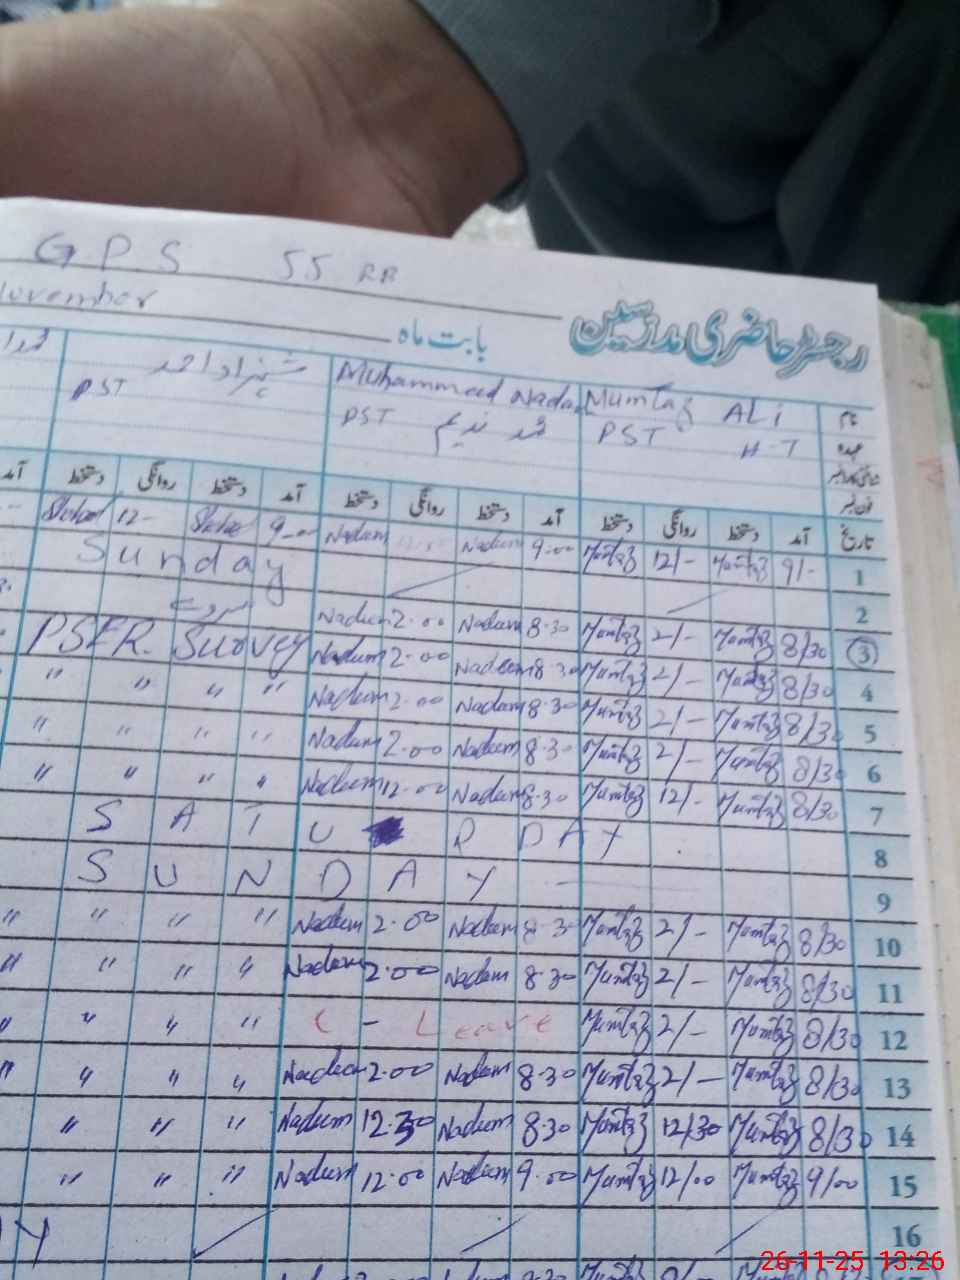 GPS 55 RB
November
بابت ماہ
رجسٹر حاضری مدرسین
شہزاد احمد Muhammad Nadeem Mumtaz ALi نام
PST PST محمد ندیم PST H-T عہدہ
آمد دستخط روانگی دستخط آمد دستخط روانگی دستخط آمد دستخط روانگی دستخط آمد تاریخ
12- 9-00 Nadeem Nadeem 9-00 Mumtaz 12/- Mumtaz 9/- 1
Sunday 2
Nadeem 2-00 Nadeem 8-30 Mumtaz 2/- Mumtaz 8/30 3
PSER. Survey Nadeem 2-00 Nadeem 8-30 Mumtaz 2/- Mumtaz 8/30 4
" " " " Nadeem 2-00 Nadeem 8-30 Mumtaz 2/- Mumtaz 8/30 5
" " " " Nadeem 2-00 Nadeem 8-30 Mumtaz 2/- Mumtaz 8/30 6
" " " " Nadeem 12-00 Nadeem 8-30 Mumtaz 12/- Mumtaz 8/30 7
SATURDAY 8
SUNDAY 9
" " " " Nadeem 2-00 Nadeem 8-30 Mumtaz 2/- Mumtaz 8/30 10
" " " " Nadeem 2-00 Nadeem 8-30 Mumtaz 2/- Mumtaz 8/30 11
" " " " C - Leave Mumtaz 2/- Mumtaz 8/30 12
" " " " Nadeem 2-00 Nadeem 8-30 Mumtaz 2/- Mumtaz 8/30 13
" " " Nadeem 12-30 Nadeem 8-30 Mumtaz 12/30 Mumtaz 8/30 14
" " " Nadeem 12-00 Nadeem 9-00 Mumtaz 12/00 Mumtaz 9/00 15
Y 16
26-11-25 13:26